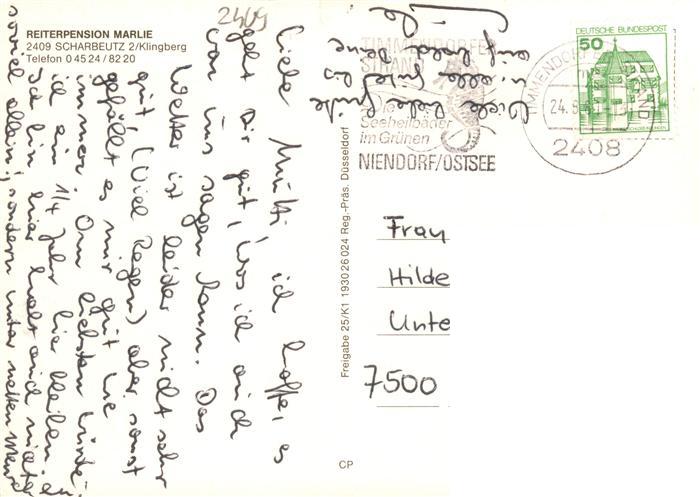 REITERPENSION MARLIE
2409 SCHARBEUTZ 2/Klingberg
Telefon 0 45 24 / 82 20
2409
Liebe Mutti, ich hoffe, es
geht Dir gut, was ich auch
von uns sagen kann. Das
Wetter ist leider nicht sehr
gut, (viel Regen) aber sonst
gefällt es mir gut wie
immer. Am liebsten würde
ich ein 1/4 Jahr hier bleiben, en
Ich bin hier halt auch nicht
soviel allein, sondern unter netten Mensch
Viele liebe Grüße
u. alles Gute bis
auf bald Deine
TIMMENDORFER
STRAND
Seeheilbäder
im Grünen
NIENDORF/OSTSEE
24.
2408
DEUTSCHE BUNDESPOST
50
Freigabe 25/K1 1930 26 024 Reg.-Präs. Düsseldorf
Frau
Hilde
Unte
7500
CP